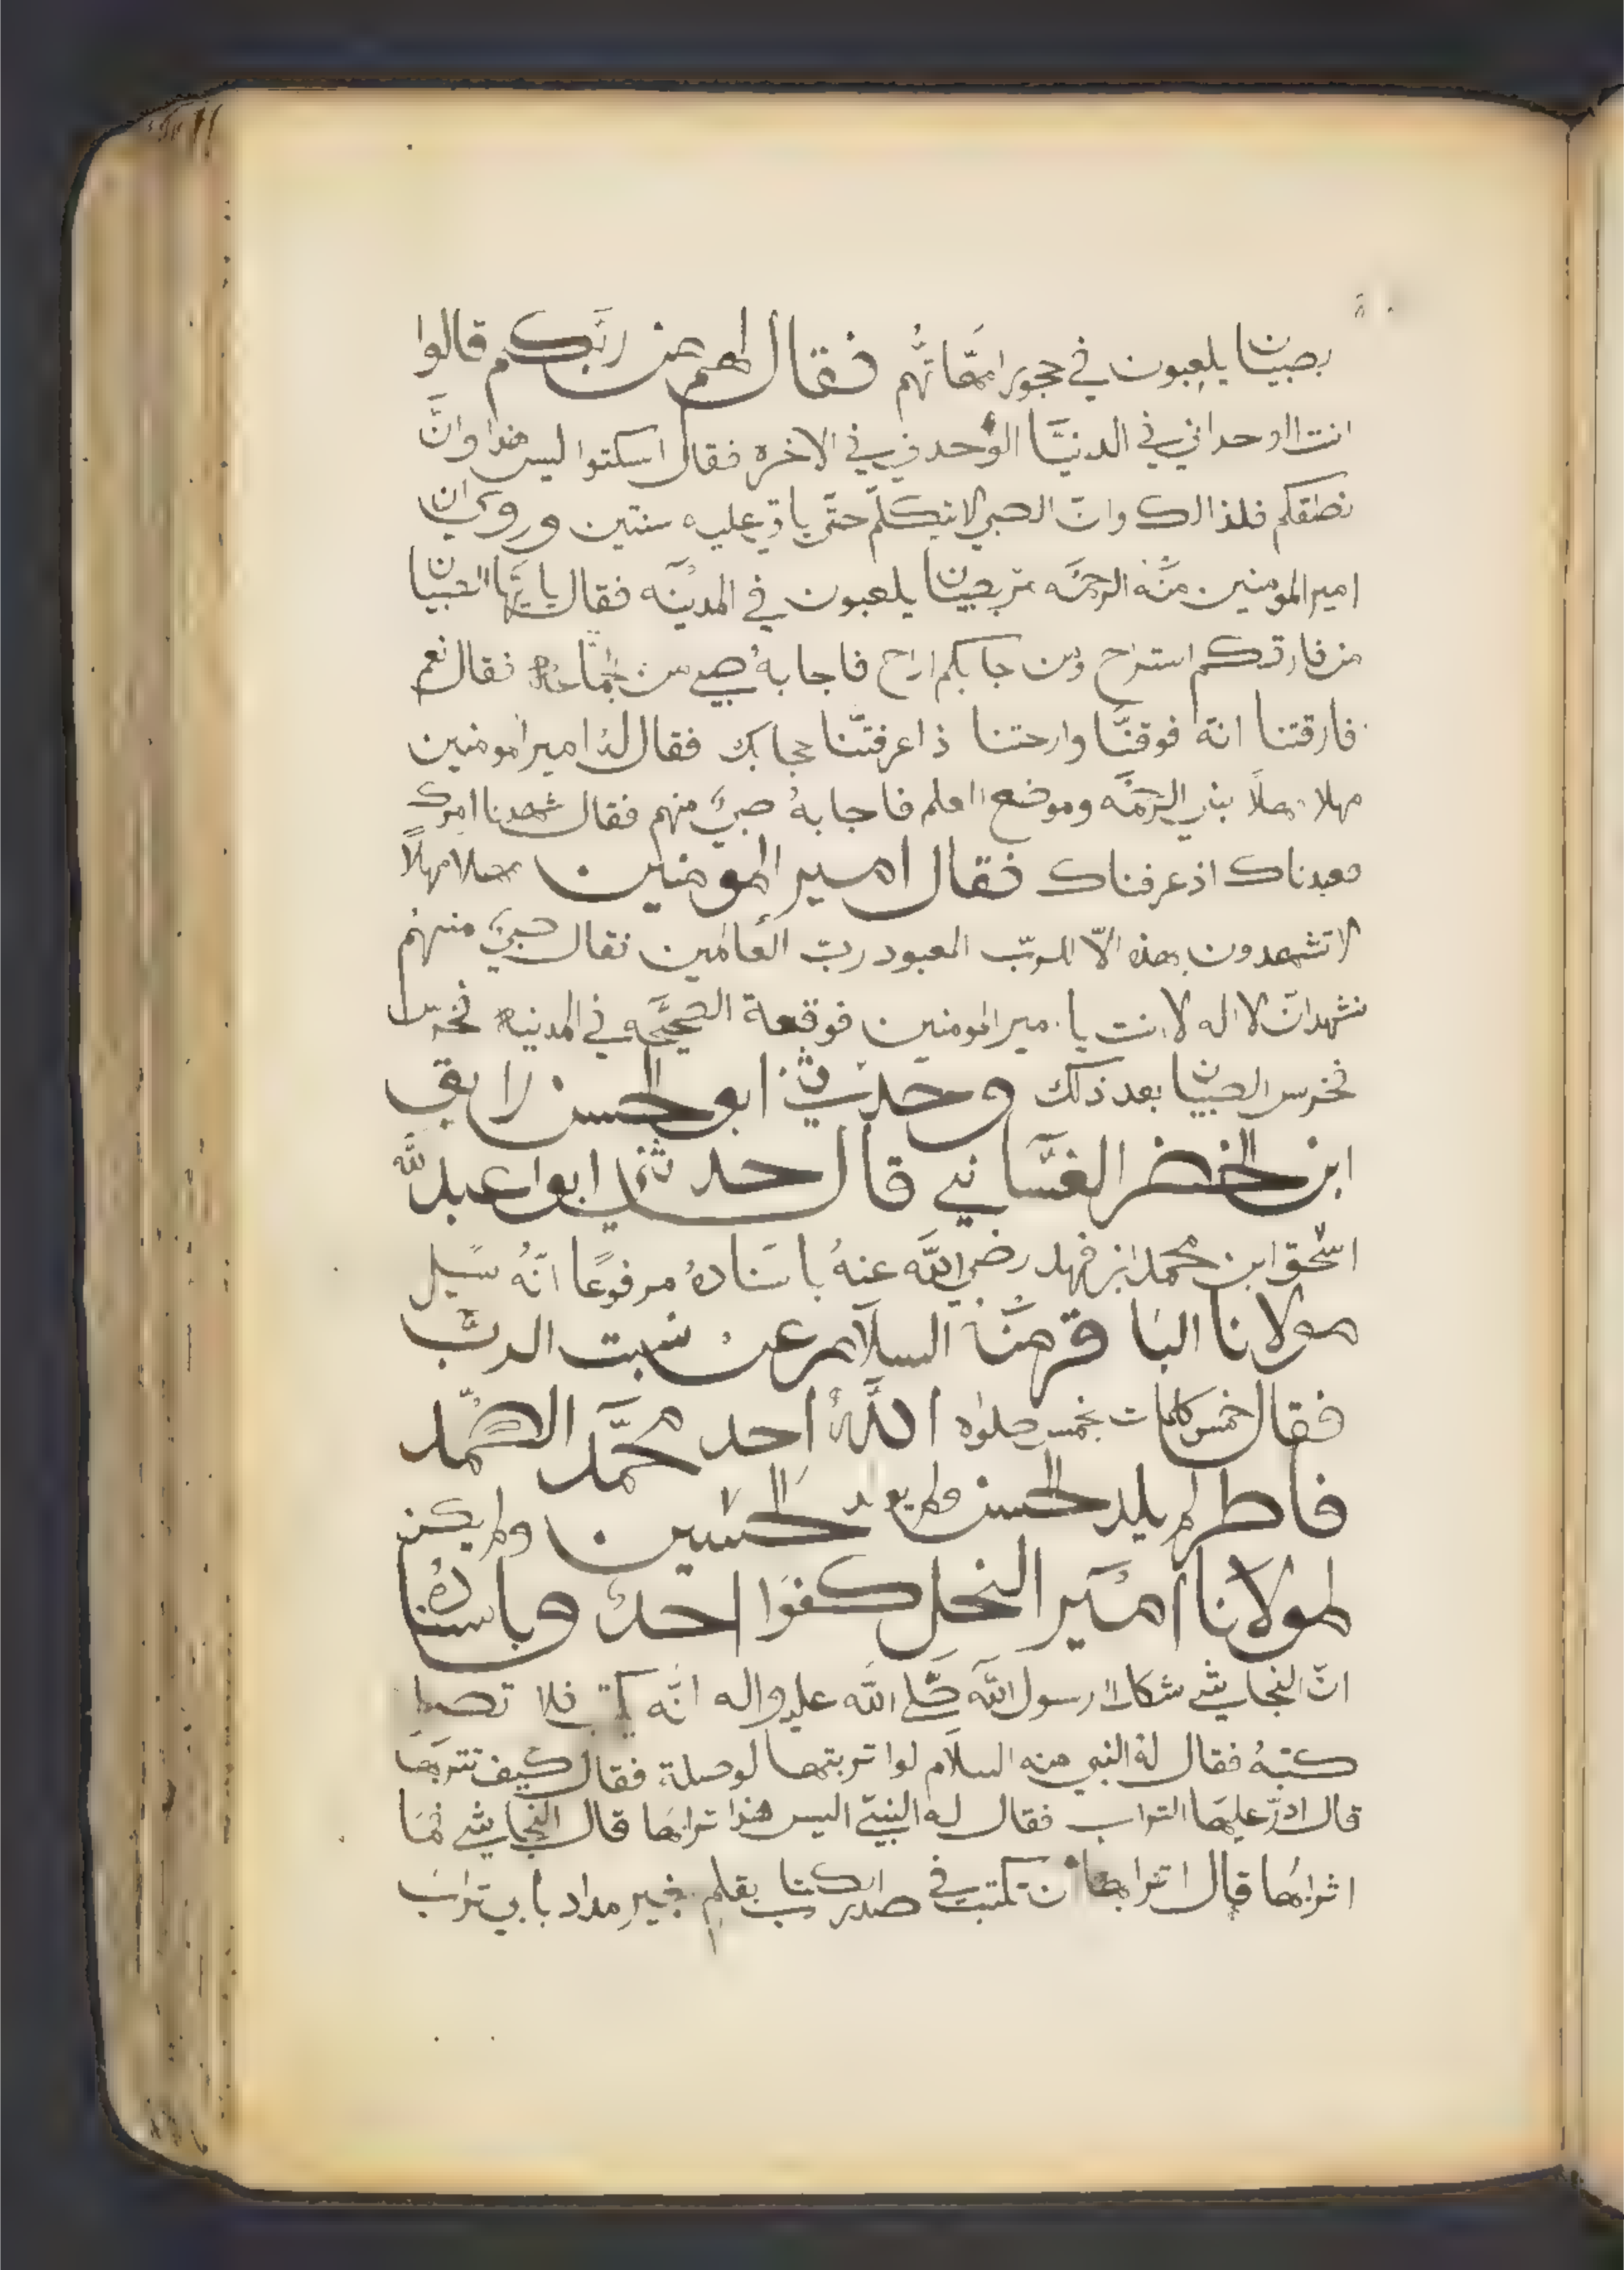 بصبيان يلعبون في حجور امّهاتهم فقال لهم من ربّكم قالوا
انت الوحداني في الدنيّا الوحد في في الاخره فقال اسكتوا ليس هذا وانَّ
نطقكم فلذالك وانّ الصبي لا يتكلّم حتّى ياتي عليه سنتين وروي ان
امير المومنين منّهُ الرحمَه مرّ بصبيان يلعبون في المدينَه فقال يا ايّها الصبيان
من فارقكم استراح ومن جابكم اراح فاجابهُ صبي من فقال نعم
فارقتنا انهّ فوقنَّا وارحتنا ذا عرفتّنا حجابك فقال لهُ امير المومنين
مهلا مهلاً بني الرحمَه وموضع العلم فاجابهُ صبيّ منهم فقال شهدنا امرك
فعبدناك اذ عرفناك فقال امير المومنين مهلا مهلاً
لا تشهدون بهذه الّا للربّ المعبود ربّ العالمين فقال صبيّ منهم
نشهد انّ لا اله لا انت يا مير المومنين فوقعة الصيحَّه في المدينه
فخرس الصبيان بعد ذلك وحدّثني ابو الحسن رايقي
ابن الخضر الغسّاني قال حدثني ابوا عبد اللّه
اسحٰق ابن محمد ابن فهد رضي اللّه عنهُ باسنادهُ مرفوعًا انّهُ سيل
مولانا الباقر منّهُ السلام عن نسبت الربّ
فقال خمس كلمات بخمس صلواه اللّهُ احد محمَّد الصمّد
فاطر لم يلد الحسن ولم يولد الحسين ولم يكن
لمولانا امير النحل كفوًا احدٌ وباسنادهُ
انّ النجاشي شكا الا رسول اللّه صَّلي اللّه عليه واله انّه فلا تصيل
كتبهُ فقال لهُ النبي منه السلام لوا تربتها لوصلة فقال كيف تتربها
قال اذرّ عليها التراب فقال له النبيّ اليس هذا ترابها قال النجاشي فما
اترابها قال اترابها ان تكتب في صدر الكتاب بقلمٍ بغير مداد يا بي تراب